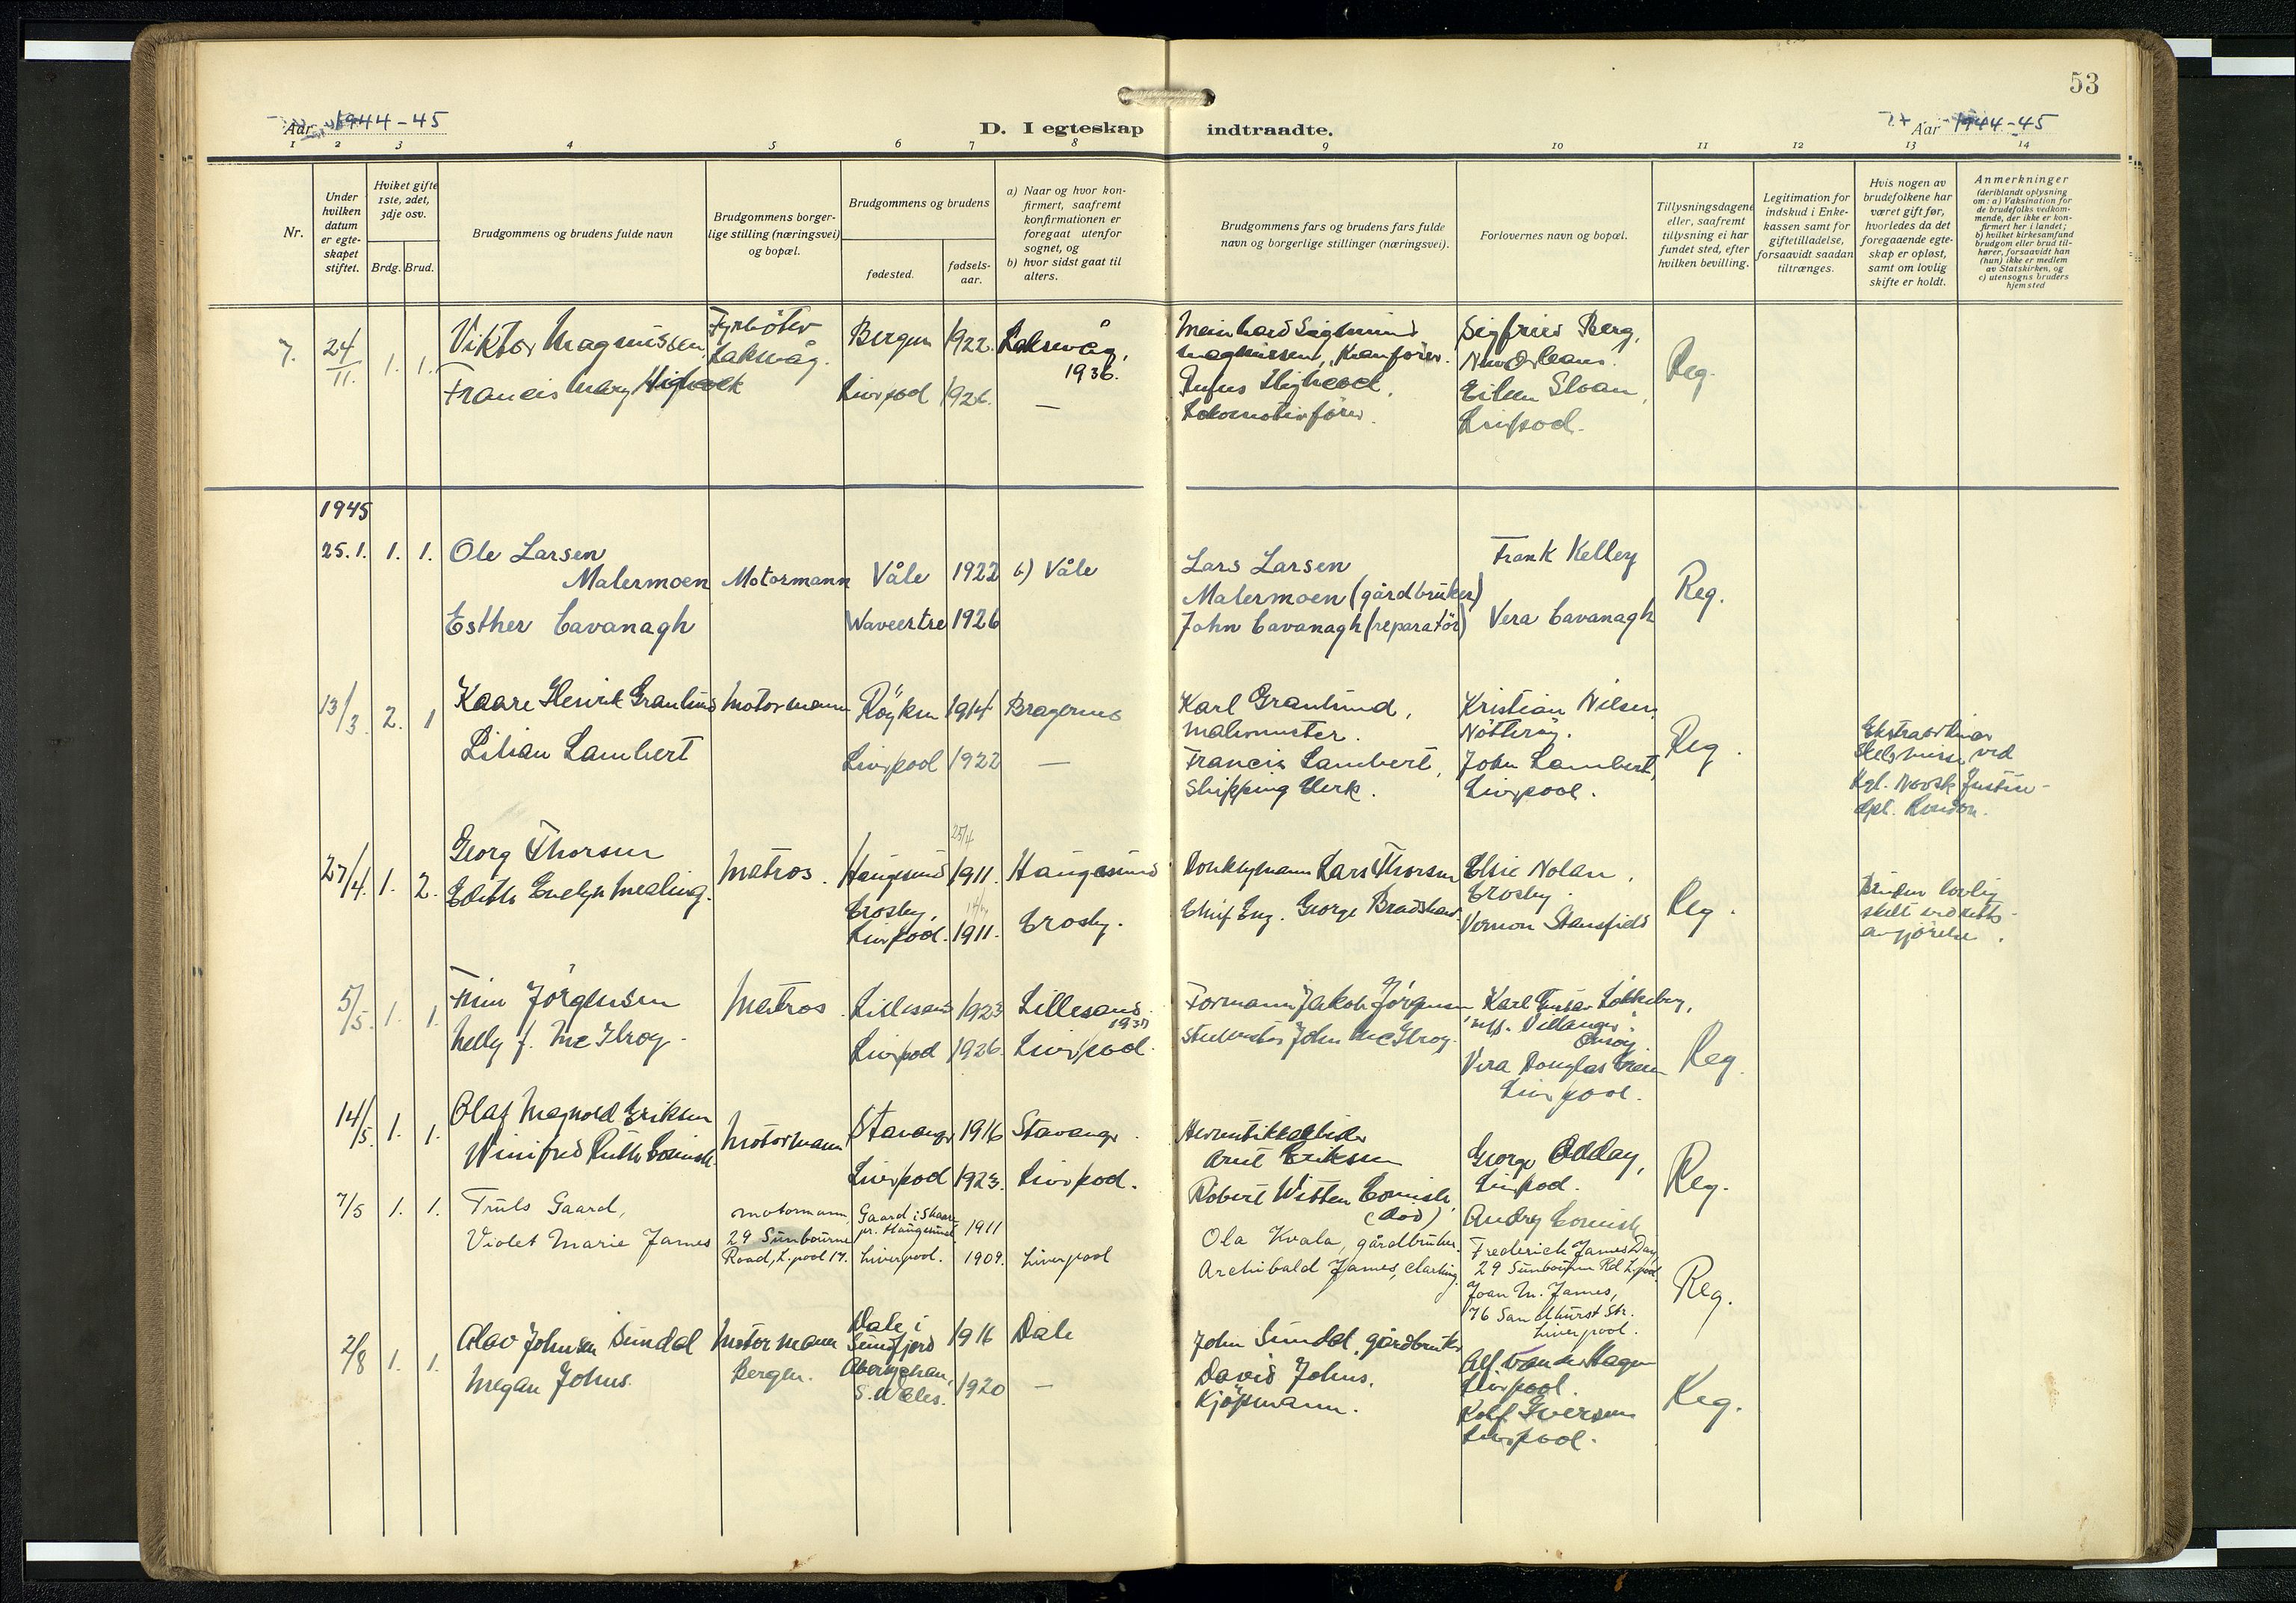 53
Aar 1944-45
D. I egteskap indtraadte.
Aar 1944-45
1 2 3 4 5 6 7 8 9 10 11 12 13 14
Nr.
Under
hvilken
datum
er egte-
skapet
stiftet.
Hviket gifte
1ste, 2det,
3dje osv.
Brdg. Brud.
Brudgommens og brudens fulde navn
Brudgommens borger-
lige stilling (næringsvei)
og bopæl.
Brudgommens og brudens
fødested.
fødsels-
aar.
a) Naar og hvor kon-
firmert, saafremt
konfirmationen er
foregaat utenfor
sognet, og
b) hvor sidst gaat til
alters.
Brudgommens fars og brudens fars fulde
navn og borgerlige stillinger (næringsvei).
Forlovernes navn og bopæl.
Tillysningsdagene
eller, saafremt
tillysning ei har
fundet sted, efter
hvilken bevilling.
Legitimation for
indskud i Enke-
kassen samt for
giftetilladelse,
forsaavidt saadan
tiltrænges.
Hvis nogen av
brudefolkene har
været gift før,
hvorledes da det
foregaaende egte-
skap er opløst,
samt om lovlig
skifte er holdt.
Anmerkninger
(deriblandt oplysning
om: a) Vaksination for
de brudefolks vedkom-
mende, der ikke er kon-
firmert her i landet;
b) hvilket kirkesamfund
brudgom eller brud til-
hører, forsaavidt han
(hun) ikke er medlem
av Statskirken, og
c) utensogns bruders
hjemsted
7. 24/11. 1. 1.
Viktor Magnussen
Francis Mary Highcock
Fyrbøter
Laksevåg.
Bergen 1922.
Liverpool 1926.
Laksevåg,
1936.
—
Meinhard Sigmund
Magnussen, Kranfører.
Rufus Highcock,
Lokomotivfører.
Sigfried Berg,
New Orleans.
Eileen Sloan,
Liverpool.
Reg.
1945
25.1. 1. 1.
Ole Larsen
Malermoen
Esther Cavanagh
Motormann
Våle 1922
Wavertree 1926
b) Våle
Lars Larsen
Malermoen (gårdbruker)
John Cavanagh (reparatør)
Frank Kelley
Vera Cavanagh
Reg.
13/3. 2. 1
Kaare Henrik Granlund
Lilian Lambert
Motormann
Røyken 1914
Liverpool 1922
Bragernes
—
Karl Granlund,
Malermester.
Francis Lambert,
Shipping Clerk.
Kristian Nilsen,
Nøtterøy.
John Lambert,
Liverpool.
Reg.
Ekstraordinær
skilsmisse ved
Kgl. Norsk Justis-
dpt. London.
27/4. 1. 2.
Georg Thorsen
Edith Evelyn Mealing.
Matros.
Haugesund 25/4 1911.
Crosby,
Liverpool. 1911.
Haugesund
Crosby.
Donkeymann Lars Thorsen
Chief Eng. George Bradshaw.
Elsie Nolan,
Crosby.
Vernon Stansfield
Reg.
Bruden lovlig
skilt ved retts-
avgjørelse.
5/5. 1. 1.
Finn Jørgensen
Nelly f. Mc Ilroy.
Matros.
Lillesand 1923
Liverpool 1926.
Lillesand.
1937
Liverpool.
Formann Jakob Jørgensen
John McIlroy.
Karl Gustav
Onsøy
Vera Douglas
Liverpool.
Reg.
14/5. 1. 1.
Olaf Magnold Eriksen
Winifred Ruth Cornish.
Motormann
Stavanger 1916
Liverpool 1923.
Stavanger.
Liverpool.
Hermetikkarbeider
Arnt Eriksen
Robert Witten Cornish
(død)
George Odday,
Liverpool.
Audry Cornish
Reg.
7/5 1. 1.
Truls Gaard,
Violet Marie James
motormann,
29 Sunbourne
Road, L.pool 17.
Gaard i Skaare
pr. Haugesund. 1911
Liverpool. 1909.
Liverpool
Ola Kvala, gårdbruker.
Archibald James,
Frederick James Day
29 Sunbourne Rd L.pool.
Joan M. James,
76 Sandhurst Str.
Liverpool.
Reg.
2/8 1. 1.
Olav Johnsen Sundal
Megan Johns.
Motormann
Bergen.
Dale i
Sunnfjord 1916
S. Wales. 1920
Dale
—
John Sundal, gårdbruker
David Johns,
Kjøpmann.
Alf von der Hagen
Liverpool.
Rolf Iversen
Liverpool.
Reg.